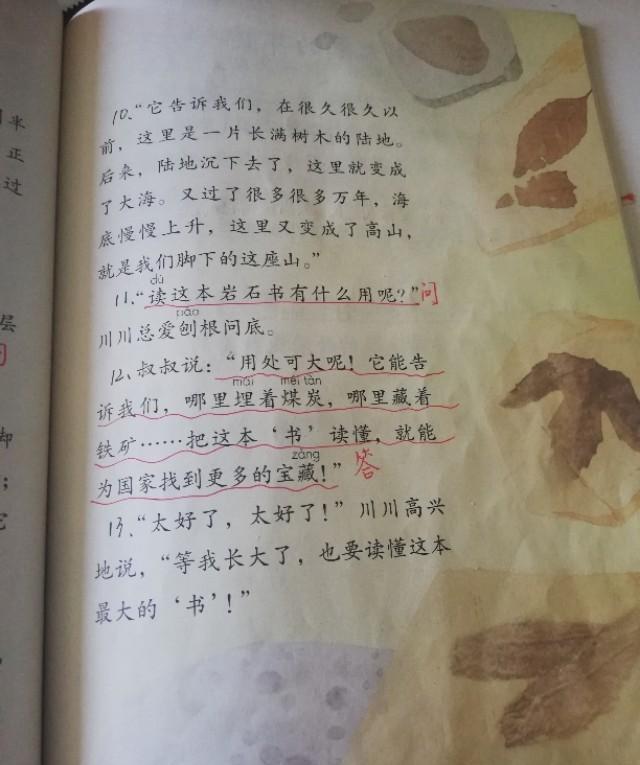 10、“它告诉我们，在很久很久以
前，这里是一片长满树木的陆地。
后来，陆地沉下去了，这里就变成
了大海。又过了很多很多万年，海
底慢慢上升，这里又变成了高山，
就是我们脚下的这座山。”
dú
11、“读这本岩石书有什么用呢？”问
páo
川川总爱刨根问底。
12、叔叔说：“用处可大呢！它能告
mái méi tàn
诉我们，哪里埋着煤炭，哪里藏着
铁矿……把这本‘书’读懂，就能
zàng
为国家找到更多的宝藏！”答
13、“太好了，太好了！”川川高兴
地说，“等我长大了，也要读懂这本
最大的‘书’！”
米
正
过
层
却
；